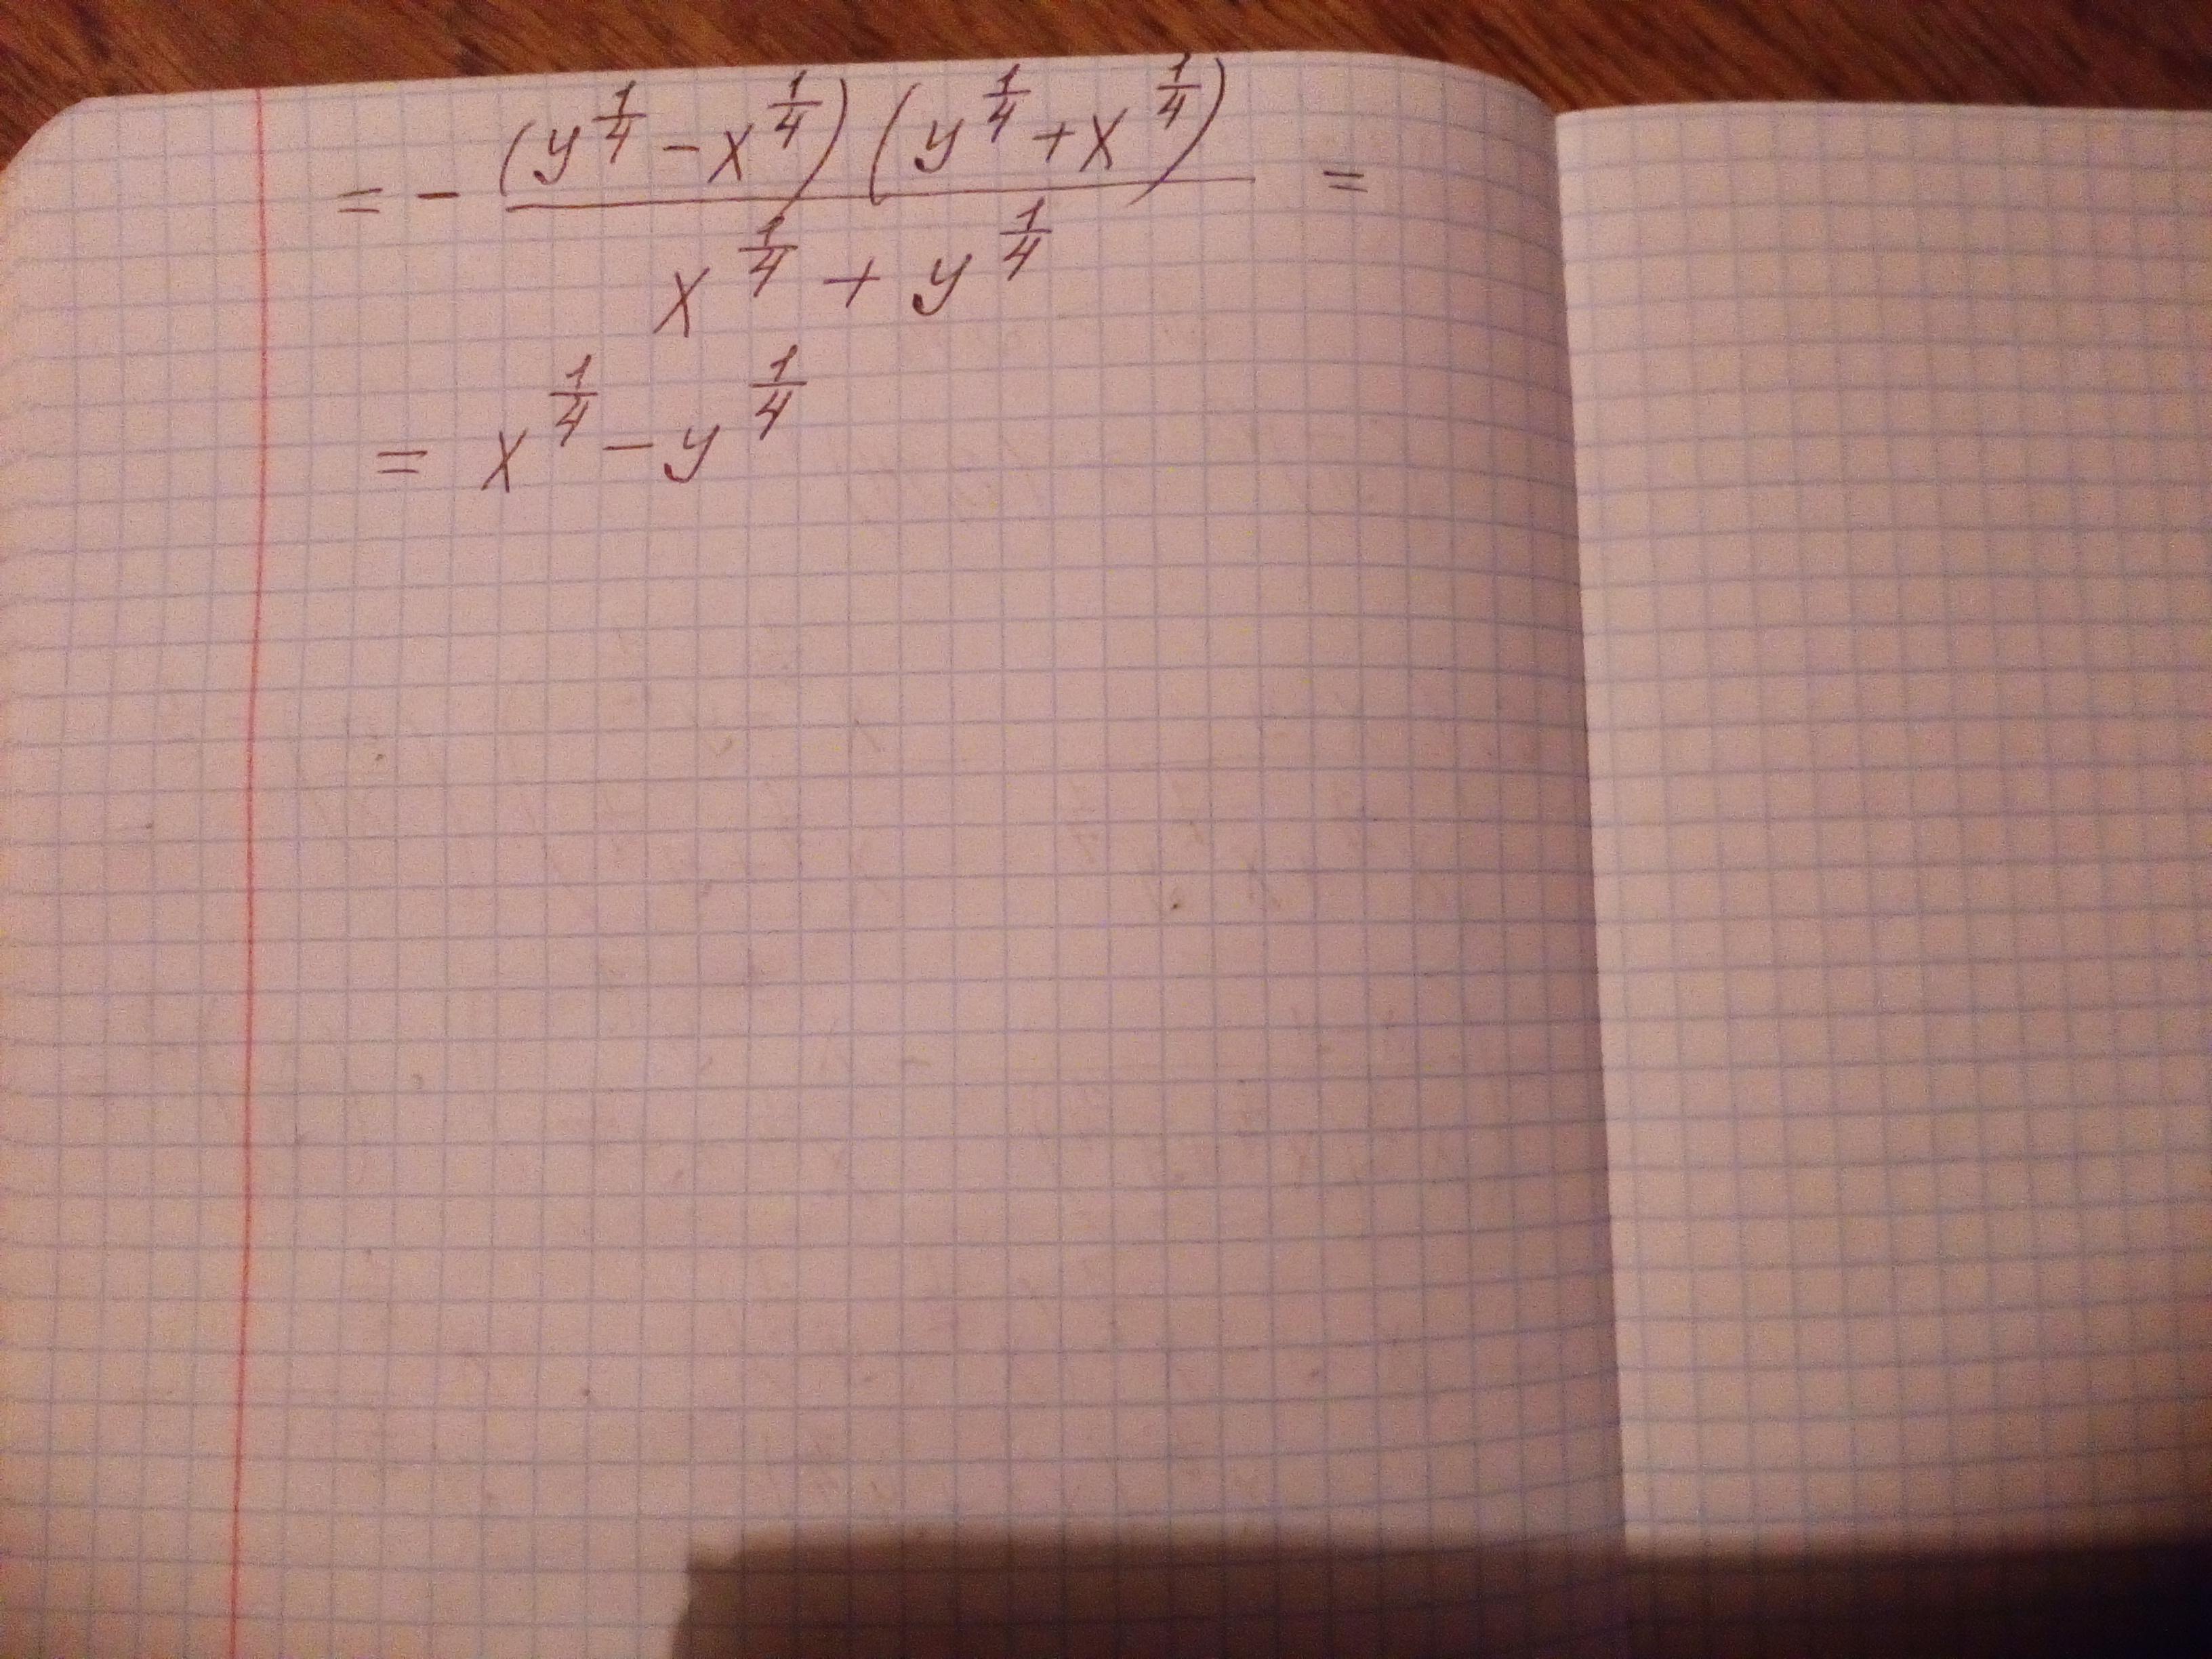 = - (y^(1/4) - x^(1/4)) (y^(1/4) + x^(1/4)) / (x^(1/4) + y^(1/4)) =
= x^(1/4) - y^(1/4)